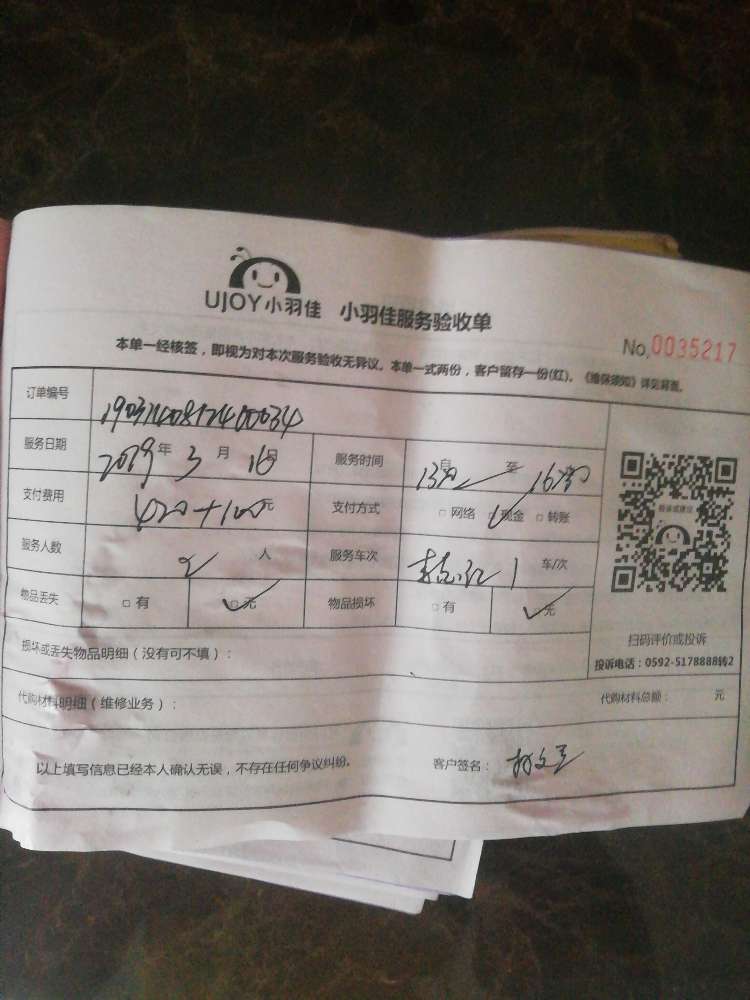 UJOY小羽佳 小羽佳服务验收单
No.0035217
本单一经核签，即视为对本次服务验收无异议。本单一式两份，客户留存一份(红)。《维保须知》详见背面。
订单编号
服务日期 2019年3月16日 服务时间 自 至
支付费用 420+100元 支付方式 □网络 □现金 □转账
服务人数 2人 服务车次 1 车/次
物品丢失 □有 □无 物品损坏 □有 □无
损坏或丢失物品明细（没有可不填）：
扫码评价或投诉
投诉电话：0592-5178888转2
代购材料明细（维修业务）： 代购材料总额： 元
以上填写信息已经本人确认无误，不存在任何争议纠纷。 客户签名：